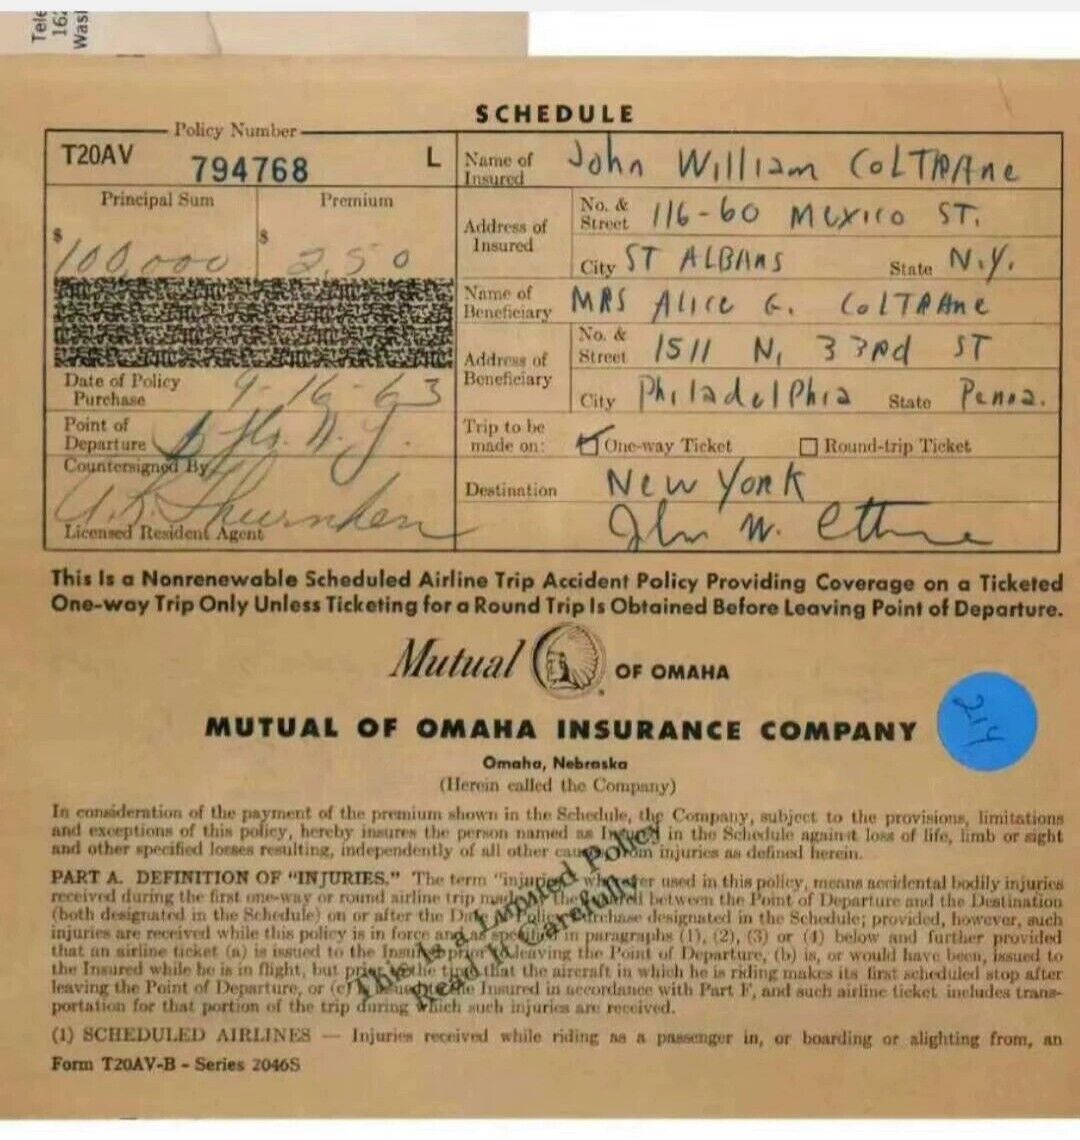 Tele
162
Wash
SCHEDULE
Policy Number
T20AV 794768 L
Principal Sum Premium
$100,000 $2.50
Date of Policy Purchase 9-16-63
Point of Departure N.Y.
Countersigned By
Licensed Resident Agent
Name of Insured John William COLTRAne
Address of Insured
No. & Street 116-60 Mexico ST.
City ST ALBANS State N.Y.
Name of Beneficiary MRS Alice G. COLTRAne
Address of Beneficiary
No. & Street 1511 N, 33Rd ST
City PhiladelPhia State Penna.
Trip to be made on: One-way Ticket Round-trip Ticket
Destination New York
John W. Coltrane
This Is a Nonrenewable Scheduled Airline Trip Accident Policy Providing Coverage on a Ticketed
One-way Trip Only Unless Ticketing for a Round Trip Is Obtained Before Leaving Point of Departure.
Mutual OF OMAHA
214
MUTUAL OF OMAHA INSURANCE COMPANY
Omaha, Nebraska
(Herein called the Company)
In consideration of the payment of the premium shown in the Schedule, the Company, subject to the provisions, limitations
and exceptions of this policy, hereby insures the person named as Insured in the Schedule against loss of life, limb or sight
and other specified losses resulting, independently of all other causes, from injuries as defined herein.
This Is a Limited Policy
Read It Carefully
PART A. DEFINITION OF "INJURIES." The term "injuries," wherever used in this policy, means accidental bodily injuries
received during the first one-way or round airline trip made by the Insured between the Point of Departure and the Destination
(both designated in the Schedule) on or after the Date of Policy Purchase designated in the Schedule; provided, however, such
injuries are received while this policy is in force and as specified in paragraphs (1), (2), (3) or (4) below and further provided
that an airline ticket (a) is issued to the Insured prior to leaving the Point of Departure, (b) is, or would have been, issued to
the Insured while he is in flight, but prior to the time that the aircraft in which he is riding makes its first scheduled stop after
leaving the Point of Departure, or (c) is issued to the Insured in accordance with Part F, and such airline ticket includes trans-
portation for that portion of the trip during which such injuries are received.
(1) SCHEDULED AIRLINES — Injuries received while riding as a passenger in, or boarding or alighting from, an
Form T20AV-B - Series 2046S